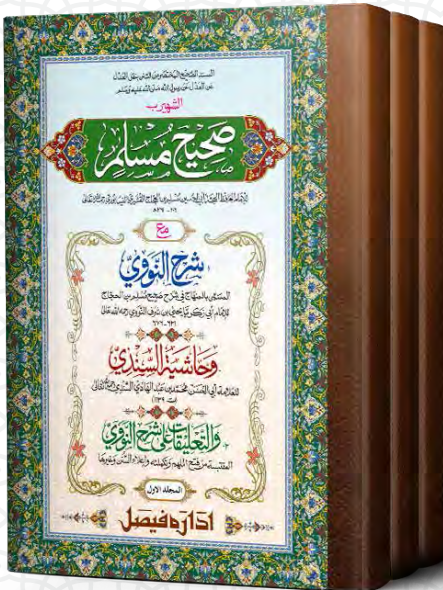 المسند الصحيح المختصر من السنن بنقل العدل
عن العدل عن رسول الله صلى الله عليه وسلم
الشهير بـ
صحيح مسلم
للإمام الحافظ أبي الحسين مسلم بن الحجاج القشيري النيسابوري رحمه الله تعالى
مع
شرح النووي
المسمى بالمنهاج في شرح صحيح مسلم بن الحجاج
للإمام أبي زكريا يحيى بن شرف النووي رحمه الله تعالى
٦٣١-٦٧٦
وحاشية السندي
للعلامة أبي الحسن محمد بن عبد الهادي السندي
والتعليقات على شرح النووي
المقتبسة من فتح الملهم وتكملته وإعلاء السنن وغيرها
المجلد الاول
ادارہ فیصل